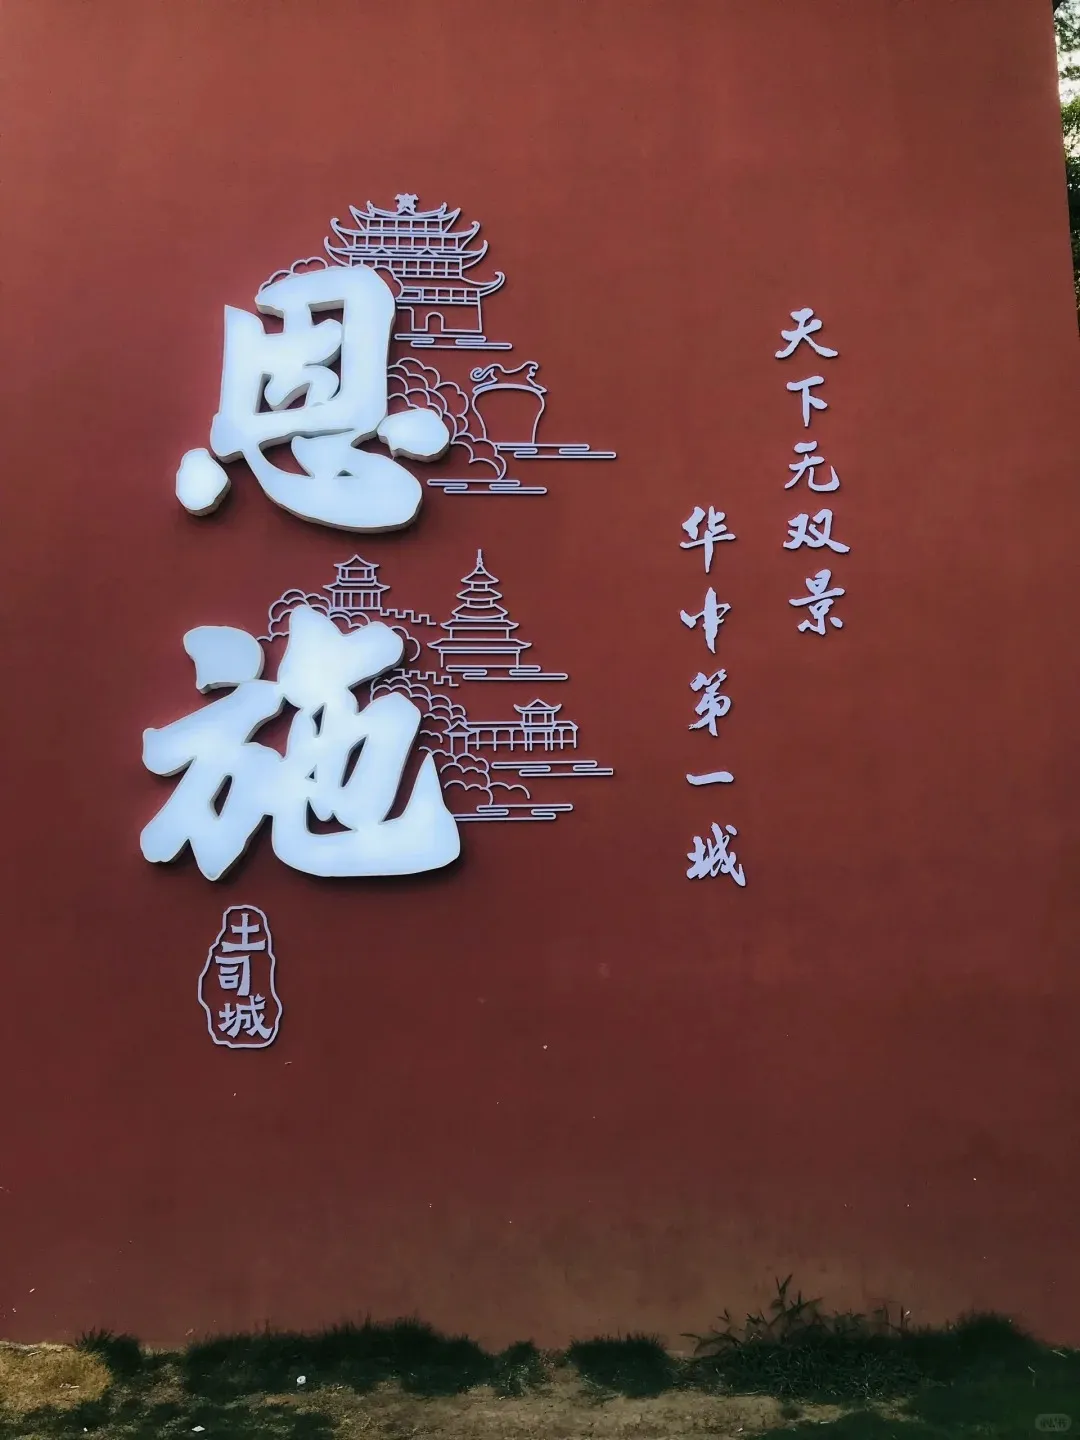 恩施
土司城
天下无双景
华中第一城